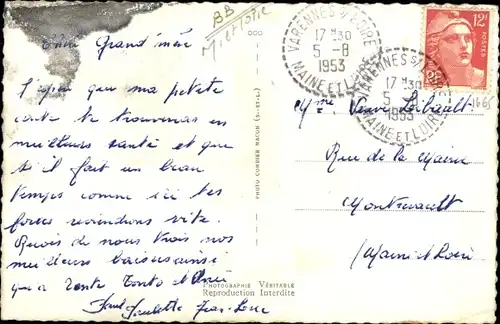 BB
Chère Grand'mère
J'espère que ma petite
carte te trouveras en
meilleure santé et que
s'il fait un beau
temps comme ici tes
forces reviendrons vite.
Reçois de nous trois nos
meilleurs baisers ainsi
que a Tante
Paul Paulette Jean-Louis
PHOTO COMBIER MACON (S.-ET-L.)
PHOTOGRAPHIE VÉRITABLE
Reproduction Interdite
VARENNES S/LOIRE
17 H 30
5 -8
1953
MAINE ET LOIRE
VARENNES S/
17 H 30
5
1953
MAINE ET LOIRE
12F
POSTES
Mme Veuve
Rue de la Mairie
Montrevault
Maine et Loire